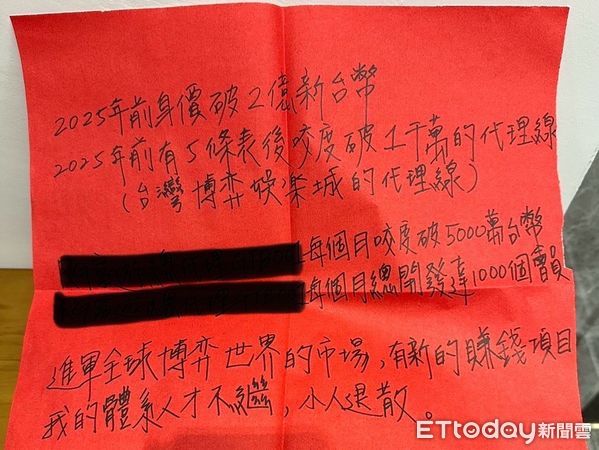 2025年前身價破2億新台幣
2025年前有5條表後咬度破1千萬的代理線
(台灣博弈娛樂城的代理線)
每個月咬度破5000萬台幣
每個月總開發達1000個會員
進軍全球博弈世界的市場,有新的賺錢項目
我的體系人才不繼,小人退散。
ETtoday新聞雲